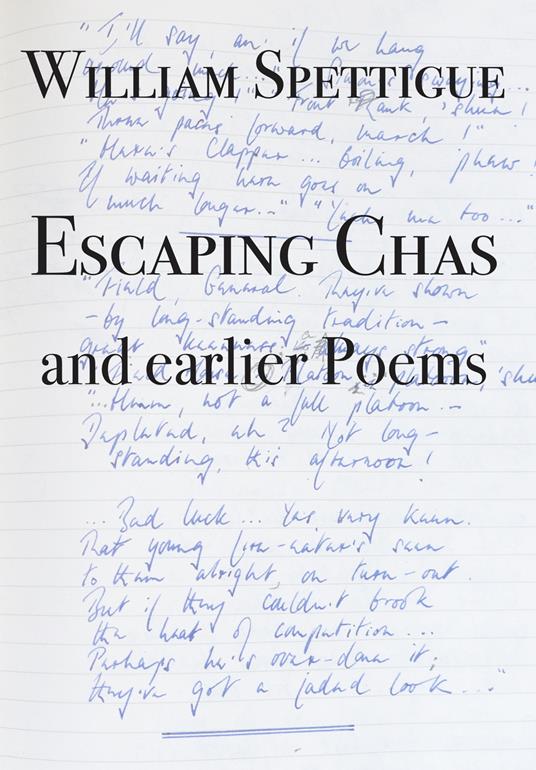 "I'll say, an' if we hang
around much
WILLIAM SPETTIGUE
Front Rank, 'shun!
Three paces forward, march!"
"Here's Clapper... boiling, phew!
If waiting here goes on
much longer.." " me too..."
ESCAPING CHAS
"Field, General. They've shown
- by long-standing tradition -
great keenness always strong"
and earlier Poems
"...Hmm, not a full platoon..-
Depleted, eh? Not long-
standing, this afternoon!
...Bad luck... Yes, very keen.
That young fire-eater's seen
to them alright, on turn-out.
But if they couldn't brook
the heat of competition...
Perhaps he's over-done it;
they've got a jaded look..."